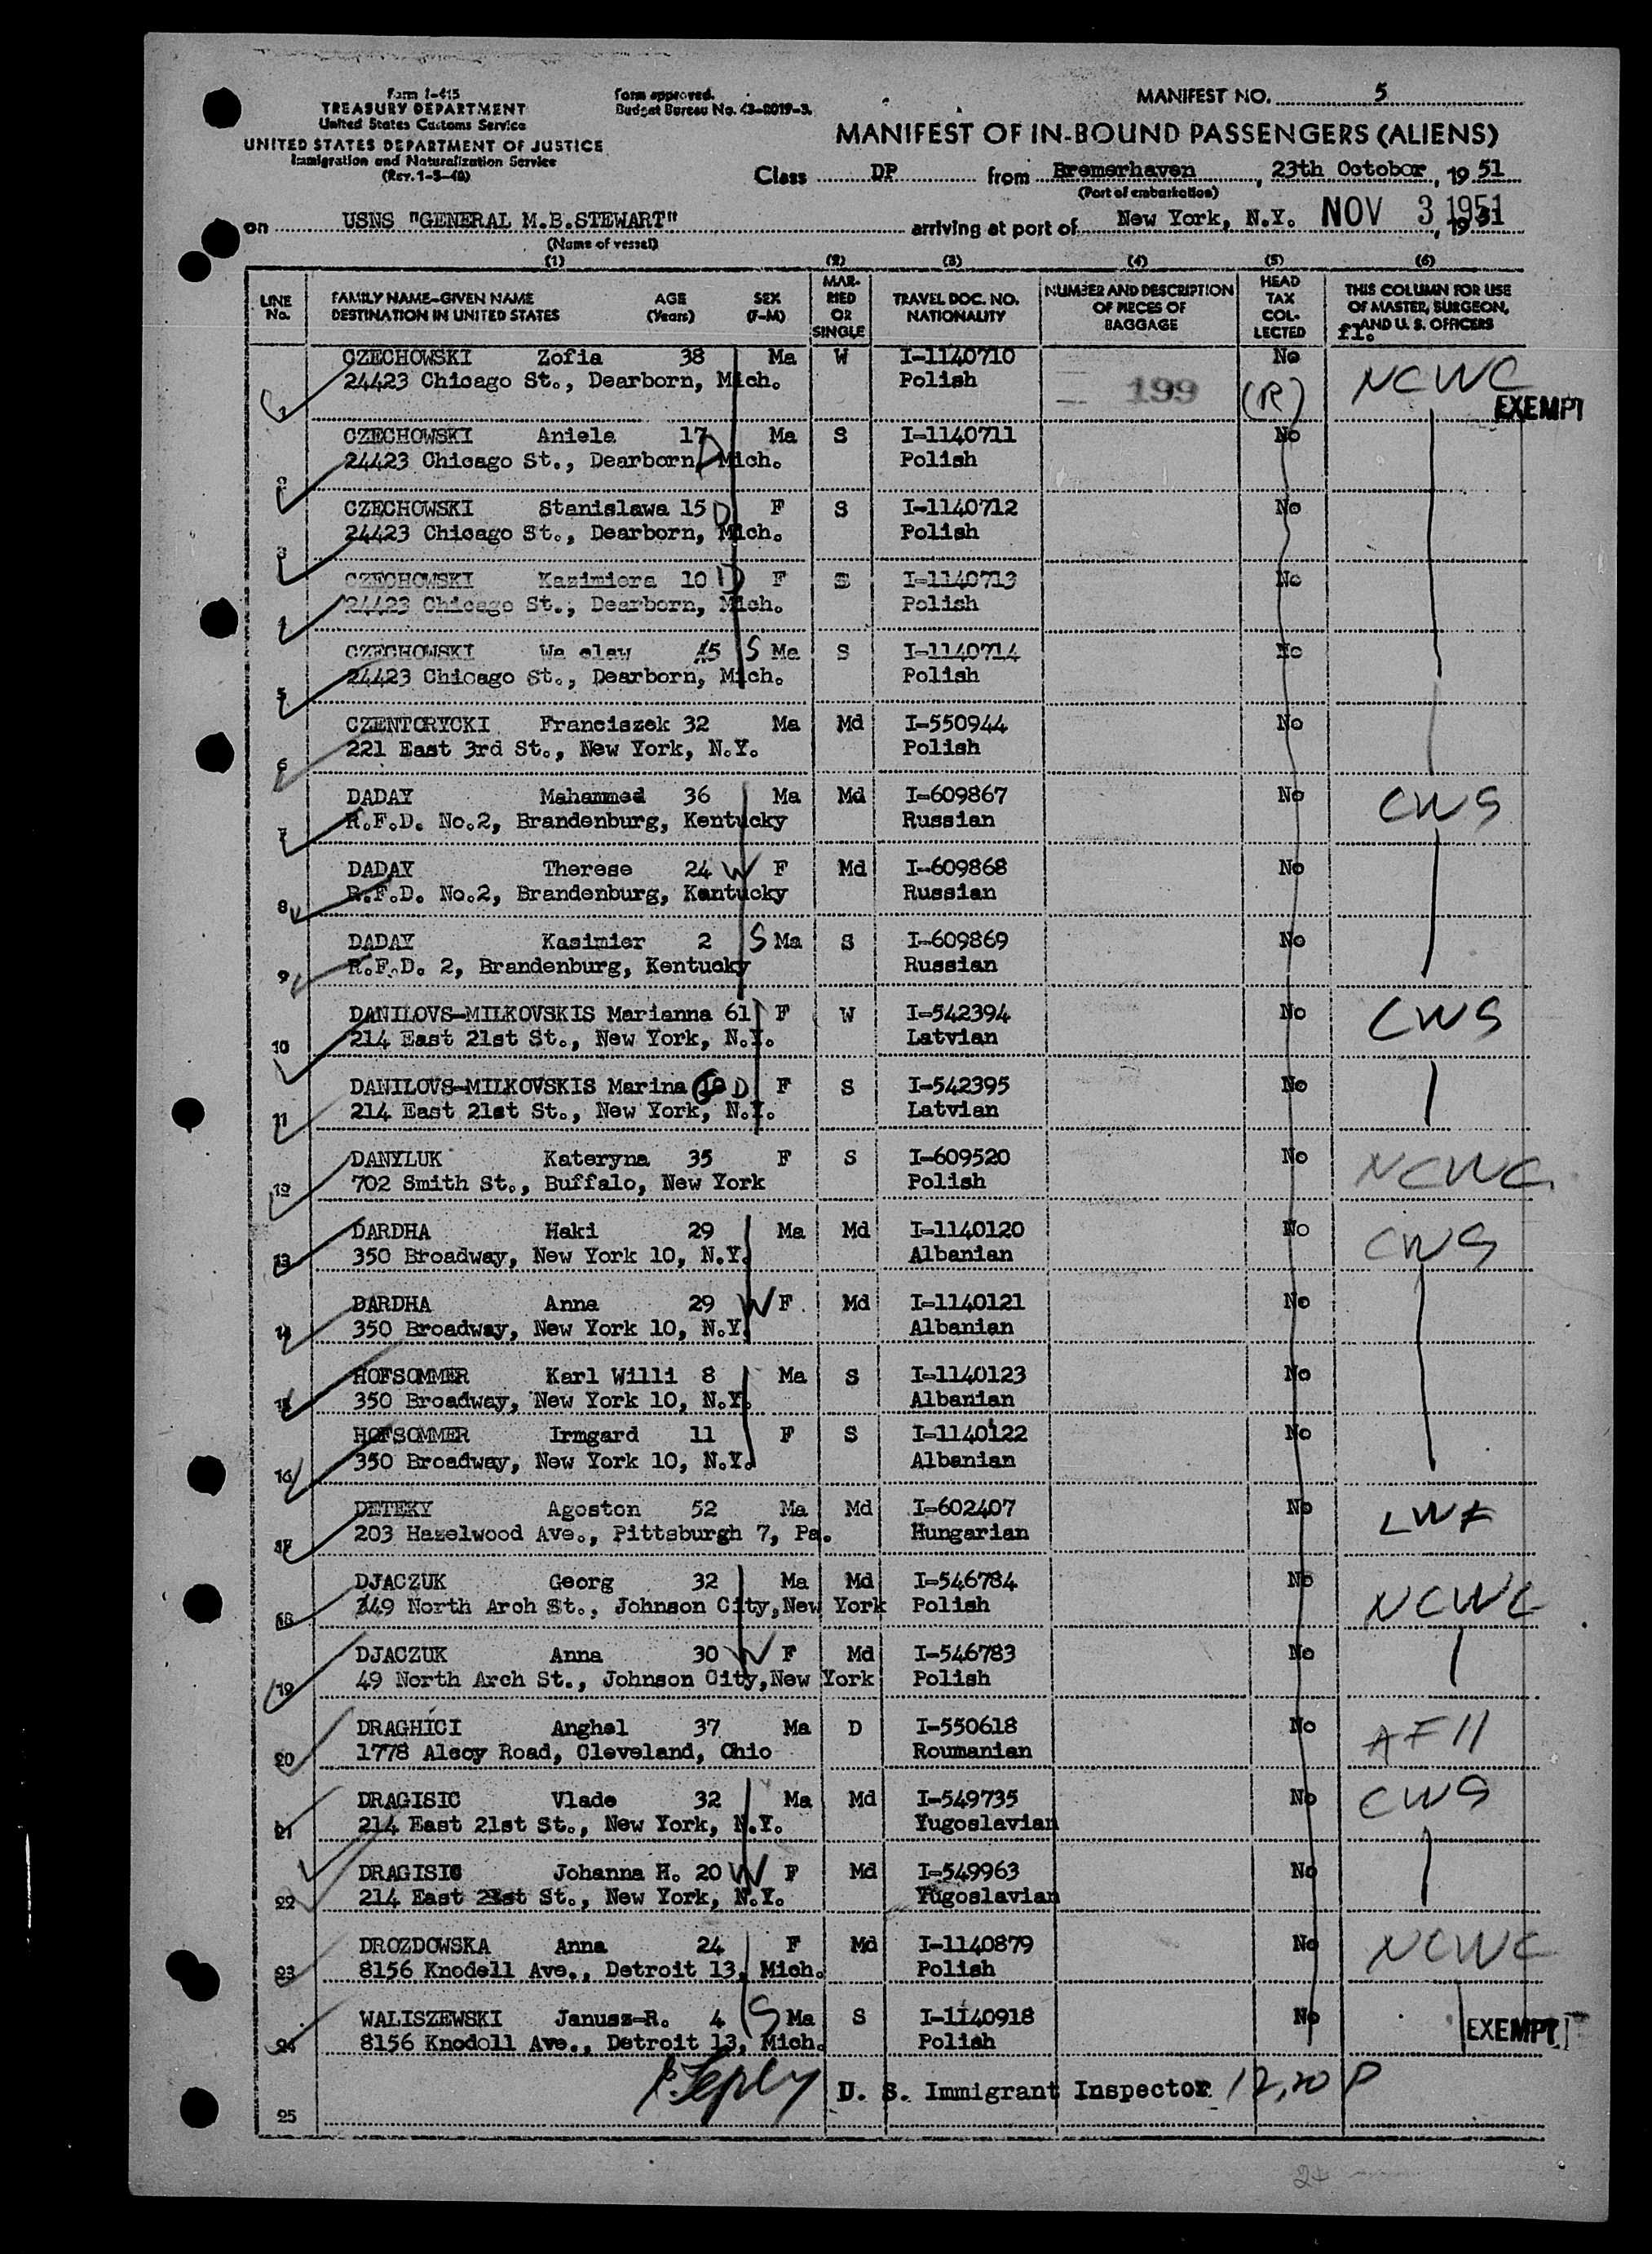 Form I-415
TREASURY DEPARTMENT
United States Customs Service
UNITED STATES DEPARTMENT OF JUSTICE
Immigration and Naturalization Service
(Rev. 1-3-48)
Form approved.
Budget Bureau No. 43-R019-3.
MANIFEST NO. 5
MANIFEST OF IN-BOUND PASSENGERS (ALIENS)
Class DP from Bremerhaven, 23th October, 19 51
(Port of embarkation)
on USNS "GENERAL M.B.STEWART" arriving at port of New York, N.Y. NOV 3 1951, 19 51
(Name of vessel)
(1) (2) (3) (4) (5) (6)
LINE No. FAMILY NAME-GIVEN NAME DESTINATION IN UNITED STATES AGE (Years) SEX (F-M) MARRIED OR SINGLE TRAVEL DOC. NO. NATIONALITY NUMBER AND DESCRIPTION OF PIECES OF BAGGAGE HEAD TAX COLLECTED THIS COLUMN FOR USE OF MASTER, SURGEON, AND U. S. OFFICERS
fl.
CZECHOWSKI Zofia 38 Ma W I-1140710 No
1 24423 Chicago St., Dearborn, Mich. Polish 199 (R) NCWC EXEMPT
CZECHOWSKI Aniela 17 D Ma S I-1140711 No
2 24423 Chicago St., Dearborn, Mich. Polish
CZECHOWSKI Stanislawa 15 D F S I-1140712 No
3 24423 Chicago St., Dearborn, Mich. Polish
CZECHOWSKI Kazimiera 10 D F S I-1140713 No
4 24423 Chicago St., Dearborn, Mich. Polish
CZECHOWSKI Wa claw 15 S Ma S I-1140714 No
5 24423 Chicago St., Dearborn, Mich. Polish
CZENTORYCKI Franciszek 32 Ma Md I-550944 No
6 221 East 3rd St., New York, N.Y. Polish
DADAY Mahammed 36 Ma Md I-609867 No CWS
7 R.F.D. No.2, Brandenburg, Kentucky Russian
DADAY Therese 24 W F Md I-609868 No
8 R.F.D. No.2, Brandenburg, Kentucky Russian
DADAY Kasimier 2 S Ma S I-609869 No
9 R.F.D. 2, Brandenburg, Kentucky Russian
DANILOVS-MILKOVSKIS Marianna 61 F W I-542394 No CWS
10 214 East 21st St., New York, N.Y. Latvian
DANILOVS-MILKOVSKIS Marina D F S I-542395 No
11 214 East 21st St., New York, N.Y. Latvian
DANYLUK Kateryna 35 F S I-609520 No NCWC
12 702 Smith St., Buffalo, New York Polish
DARDHA Haki 29 Ma Md I-1140120 No CWS
13 350 Broadway, New York 10, N.Y. Albanian
DARDHA Anna 29 W F Md I-1140121 No
14 350 Broadway, New York 10, N.Y. Albanian
HOFSOMMER Karl Willi 8 Ma S I-1140123 No
15 350 Broadway, New York 10, N.Y. Albanian
HOFSOMMER Irmgard 11 F S I-1140122 No
16 350 Broadway, New York 10, N.Y. Albanian
DETEKY Agoston 52 Ma Md I-602407 No LWF
17 203 Hazelwood Ave., Pittsburgh 7, Pa. Hungarian
DJACZUK Georg 32 Ma Md I-546784 No NCWC
18 249 North Arch St., Johnson City, New York Polish
DJACZUK Anna 30 W F Md I-546783 No
19 49 North Arch St., Johnson City, New York Polish
DRAGHICI Anghel 37 Ma D I-550618 No
20 1778 Alcoy Road, Cleveland, Ohio Roumanian
DRAGISIC Vlade 32 Ma Md I-549735 No CWS
21 214 East 21st St., New York, N.Y. Yugoslavian
DRAGISIC Johanna H. 20 W F Md I-549963 No
22 214 East 21st St., New York, N.Y. Yugoslavian
DROZDOWSKA Anna 24 F Md I-1140879 No NCWC
23 8156 Knodell Ave., Detroit 13, Mich. Polish
WALISZEWSKI Janusz-R. 4 S Ma S I-1140918 No EXEMPT
24 8156 Knodoll Ave., Detroit 13, Mich. Polish
U. S. Immigrant Inspector 12,20 P
25
24